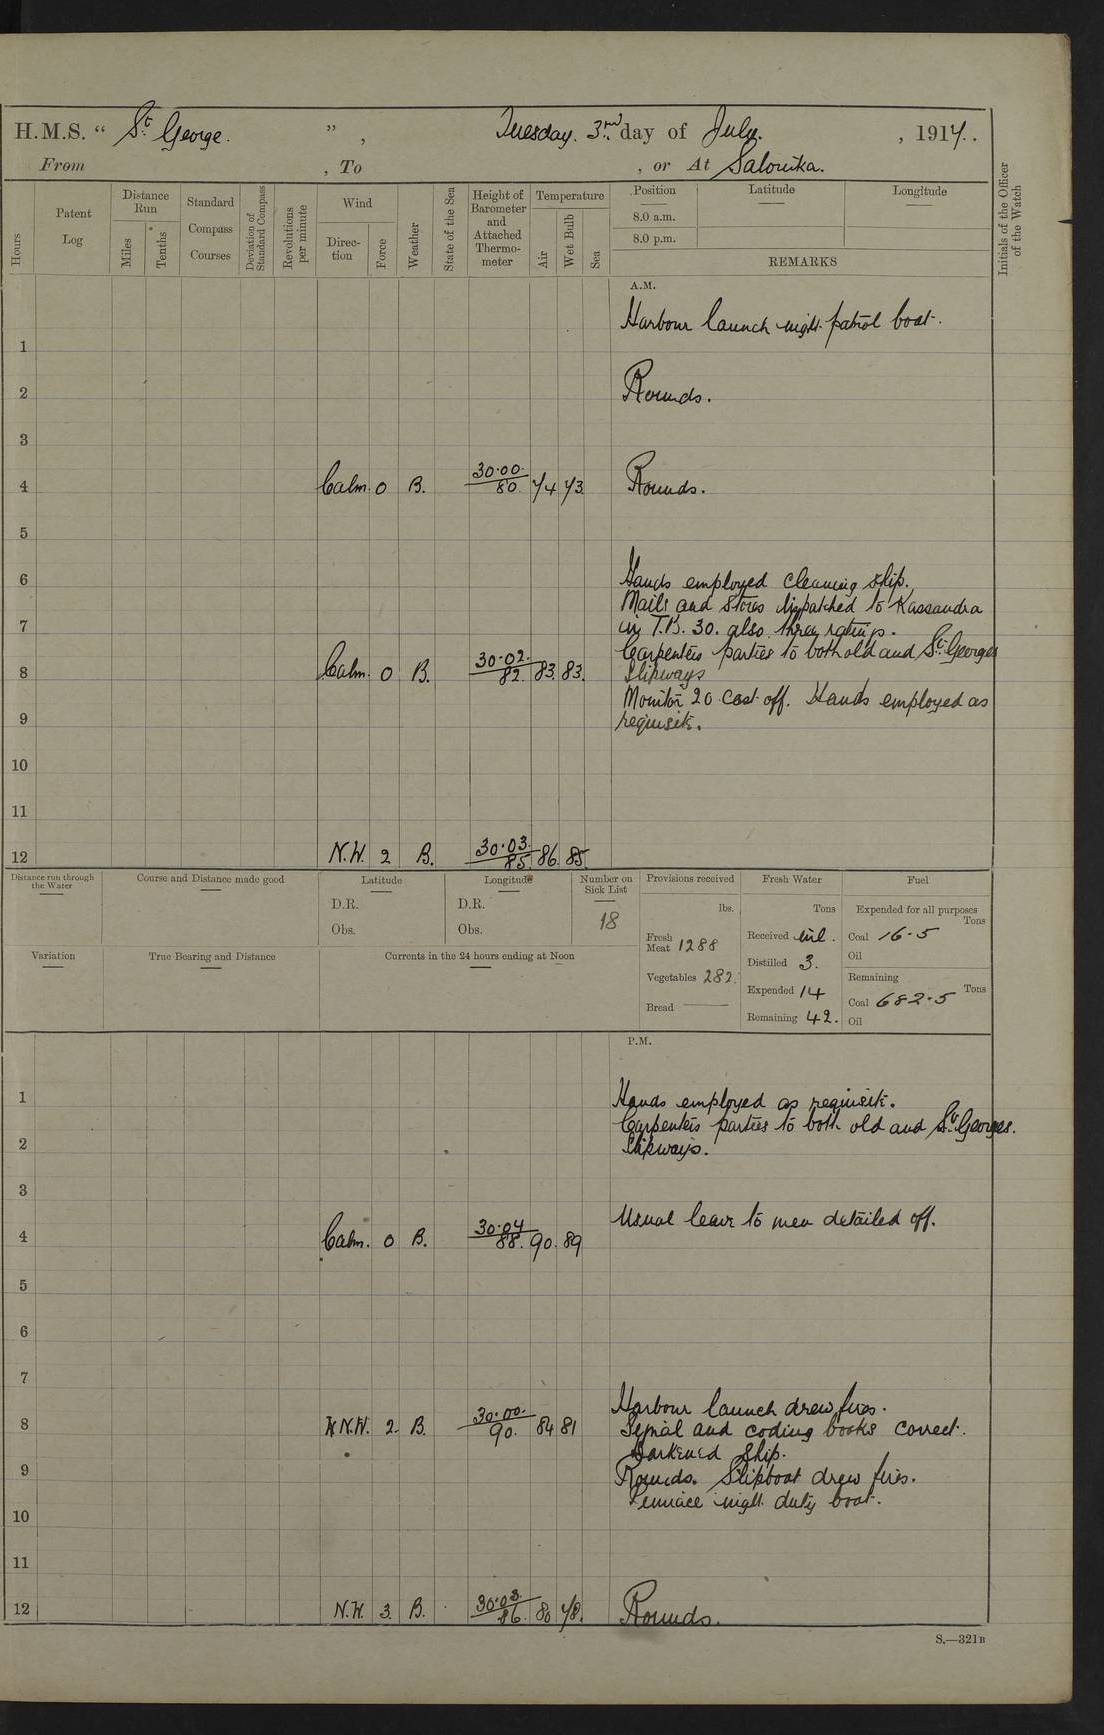 H.M.S. " St George. ", Tuesday. 3rd day of July. , 1917.
From , To , or At Salonika.
Hours
Patent Log
Distance Run
Miles
Tenths
Standard Compass Courses
Deviation of Standard Compass
Revolutions per minute
Wind
Direction
Force
Weather
State of the Sea
Height of Barometer and Attached Thermometer
Temperature
Air
Wet Bulb
Sea
Position
8.0 a.m.
8.0 p.m.
Latitude
Longitude
REMARKS
Initials of the Officer of the Watch
A.M.
Harbour launch night patrol boat.
1
2 Rounds.
3
4 Calm. 0 B. 30.00. 80. 74 73 Rounds.
5
6 Hands employed cleaning ship.
Mails and stores dispatched to Kassandra
7 in T.B. 30. also three ratings.
Carpenters parties to both old and St. Georges
8 Calm. 0 B. 30.02. 82. 83. 83. Slipways
Monitor 20 cast off. Hands employed as
9 requisite.
10
11
12 N.W. 2 B. 30.03. 85. 86. 85.
Distance run through the Water
Course and Distance made good
Latitude
D.R.
Obs.
Longitude
D.R.
Obs.
Number on Sick List
18
Provisions received
lbs.
Fresh Meat 1288
Vegetables 282.
Bread
Fresh Water
Tons
Received nil.
Distilled 3.
Expended 14
Remaining 42.
Fuel
Expended for all purposes
Tons
Coal 16.5
Oil
Remaining
Tons
Coal 682.5
Oil
Variation
True Bearing and Distance
Currents in the 24 hours ending at Noon
P.M.
1 Hands employed as requisite.
Carpenters parties to both old and St. Georges.
2 Slipways.
3
4 Calm. 0 B. 30.04 88. 90. 89 Usual leave to men detailed off.
5
6
7
Harbour launch drew fires.
8 W N.W. 2. B. 30.00. 90. 84 81 Signal and coding books correct.
Darkened ship.
9 Rounds. Slipboat drew fires.
Pinnace night duty boat.
10
11
12 N.W. 3. B. 30.03. 86. 80 78. Rounds.
S.—321B